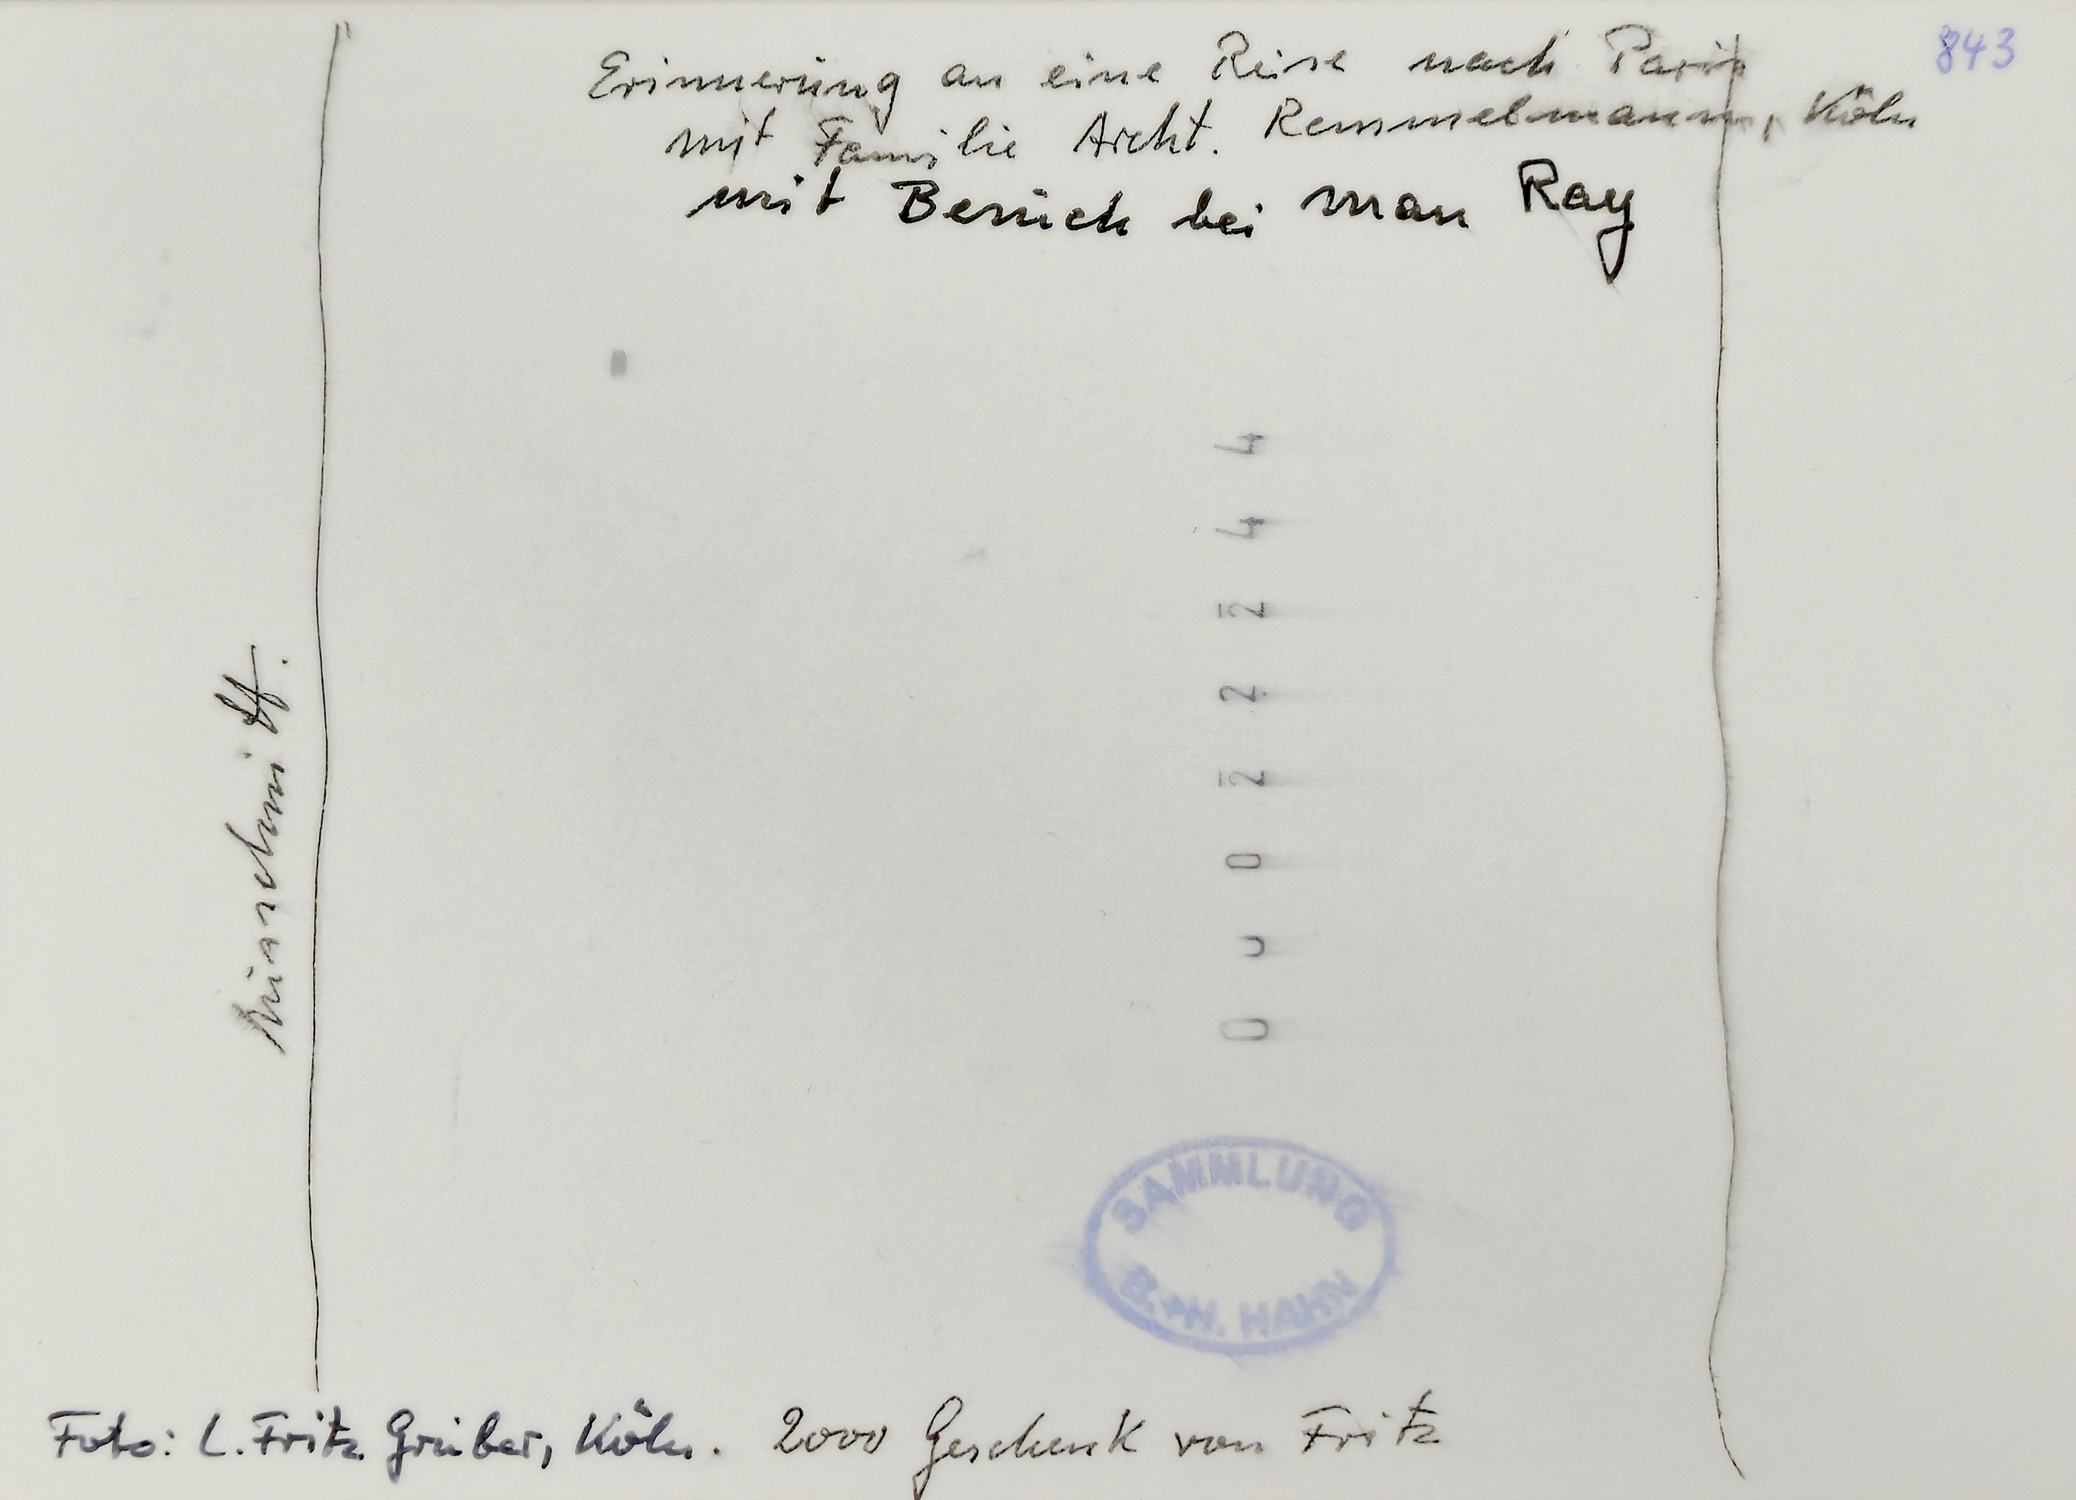 843
Erinnerung an eine Reise nach Paris
mit Familie Archt. Remmelmann, Köln
mit Besuch bei Man Ray
4 4 2 2 2 0 0 0
SAMMLUNG
B.+H. HAHN
Foto: L. Fritz Gruber, Köln. 2000 Geschenk von Fritz